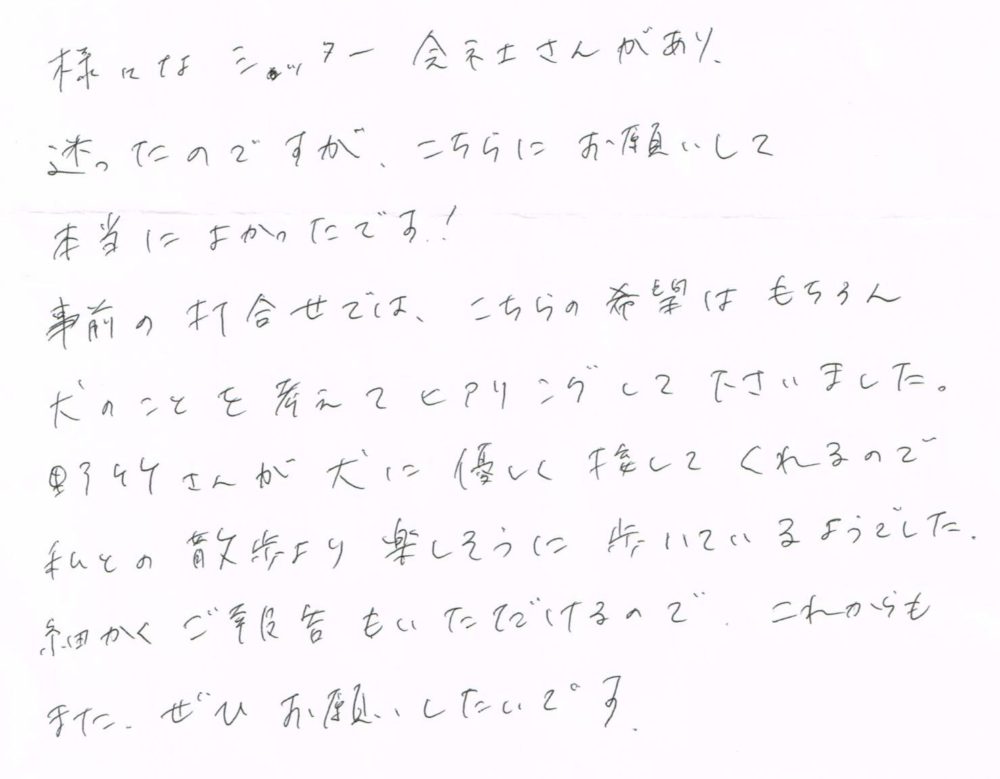 様々なシッター会社さんがあり、
迷ったのですが、こちらにお願いして
本当によかったです!
事前の打合せでは、こちらの希望はもちろん
犬のことを考えてヒアリングして下さいました。
野竹さんが犬に優しく接してくれるので
私との散歩より楽しそうに歩いているようでした。
細かくご報告もいただけるので、これからも
また、ぜひお願いしたいです。